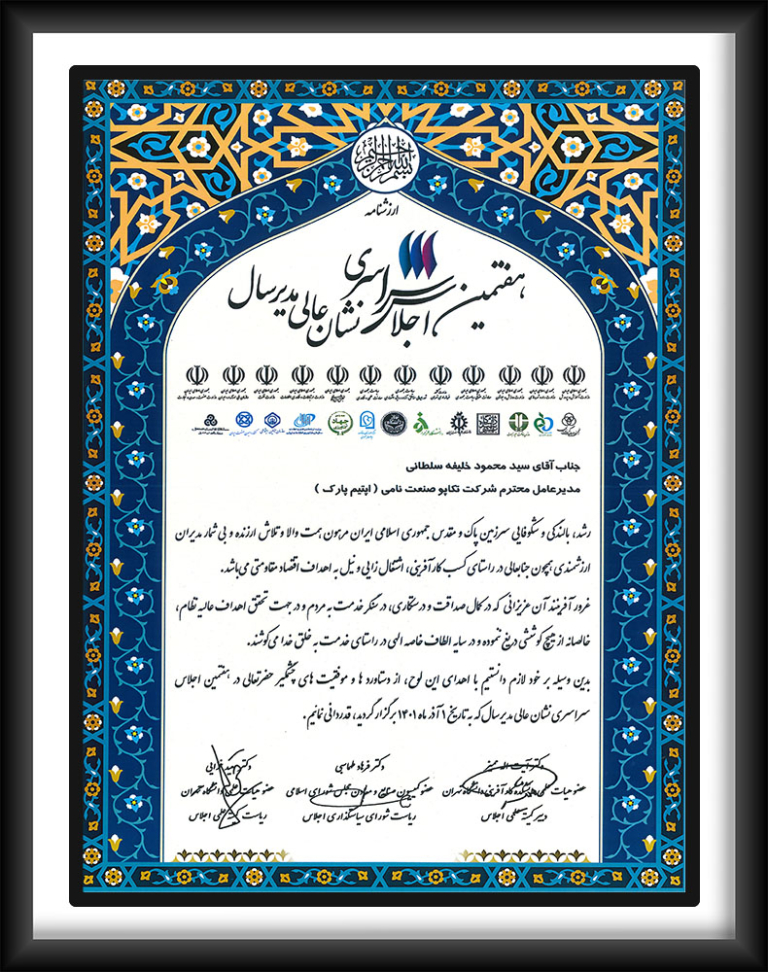 بسم الله الرحمن الرحیم
ارزشنامه
هفتمین اجلاس سراسری
نشان عالی مدیر سال
جناب آقای سید محمود خلیفه سلطانی
مدیرعامل محترم شرکت تکاپو صنعت نامی ( اپتیم پارک )
رشد، بالندگی و شکوفایی سرزمین پاک و مقدس جمهوری اسلامی ایران مرهون همت والا و تلاش ارزنده و بی شمار مدیران
ارزشمندی همچون جنابعالی در راستای کسب کارآفرینی، اشتغال زایی و نیل به اهداف اقتصاد مقاومتی می‌باشد.
غرور آفرینند آن عزیزانی که در کمال صداقت و درستکاری، در سنگر خدمت به مردم و در جهت تحقق اهداف عالیه نظام،
خالصانه از هیچ کوششی دریغ ننموده و در سایه الطاف خاصه الهی در راستای خدمت به خلق خدا می‌کوشند.
بدین وسیله بر خود لازم دانستیم با اهدای این لوح، از دستاورد ها و موفقیت های چشمگیر حضرتعالی در هفتمین اجلاس
سراسری نشان عالی مدیر سال که به تاریخ ۱ آذر ماه ۱۴۰۱ برگزار گردید، قدردانی نمائیم.
دکتر فرهاد طهماسبی
عضو کمیسیون صنایع و معادن مجلس شورای اسلامی
ریاست شورای سیاستگذاری اجلاس
عضو هیات علمی دانشکده کارآفرینی دانشگاه تهران
دبیر کمیته علمی اجلاس
عضو هیات علمی دانشگاه تهران
ریاست کمیته علمی اجلاس